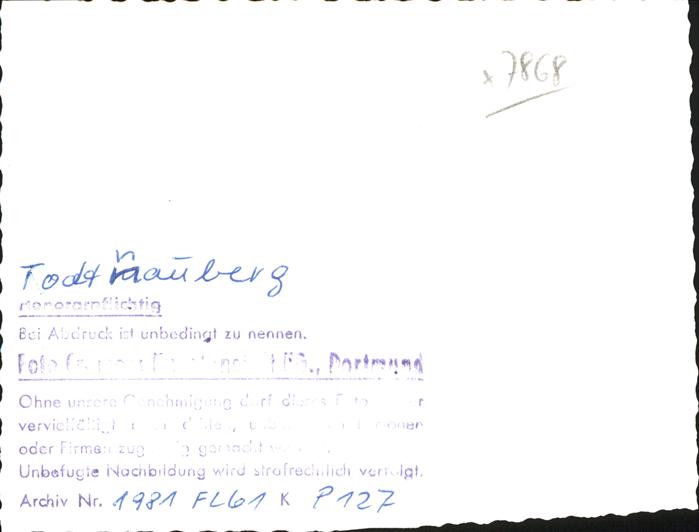 x 7868
Todtnauberg
Honorarpflichtig
Bei Abdruck ist unbedingt zu nennen.
Foto KG., Dortmund
Ohne unsere Genehmigung darf dieses Foto
vervielfältigt
oder Firmen zugängig gemacht werden.
Unbefugte Nachbildung wird strafrechtlich verfolgt.
Archiv Nr. 1981 FL61 K P127